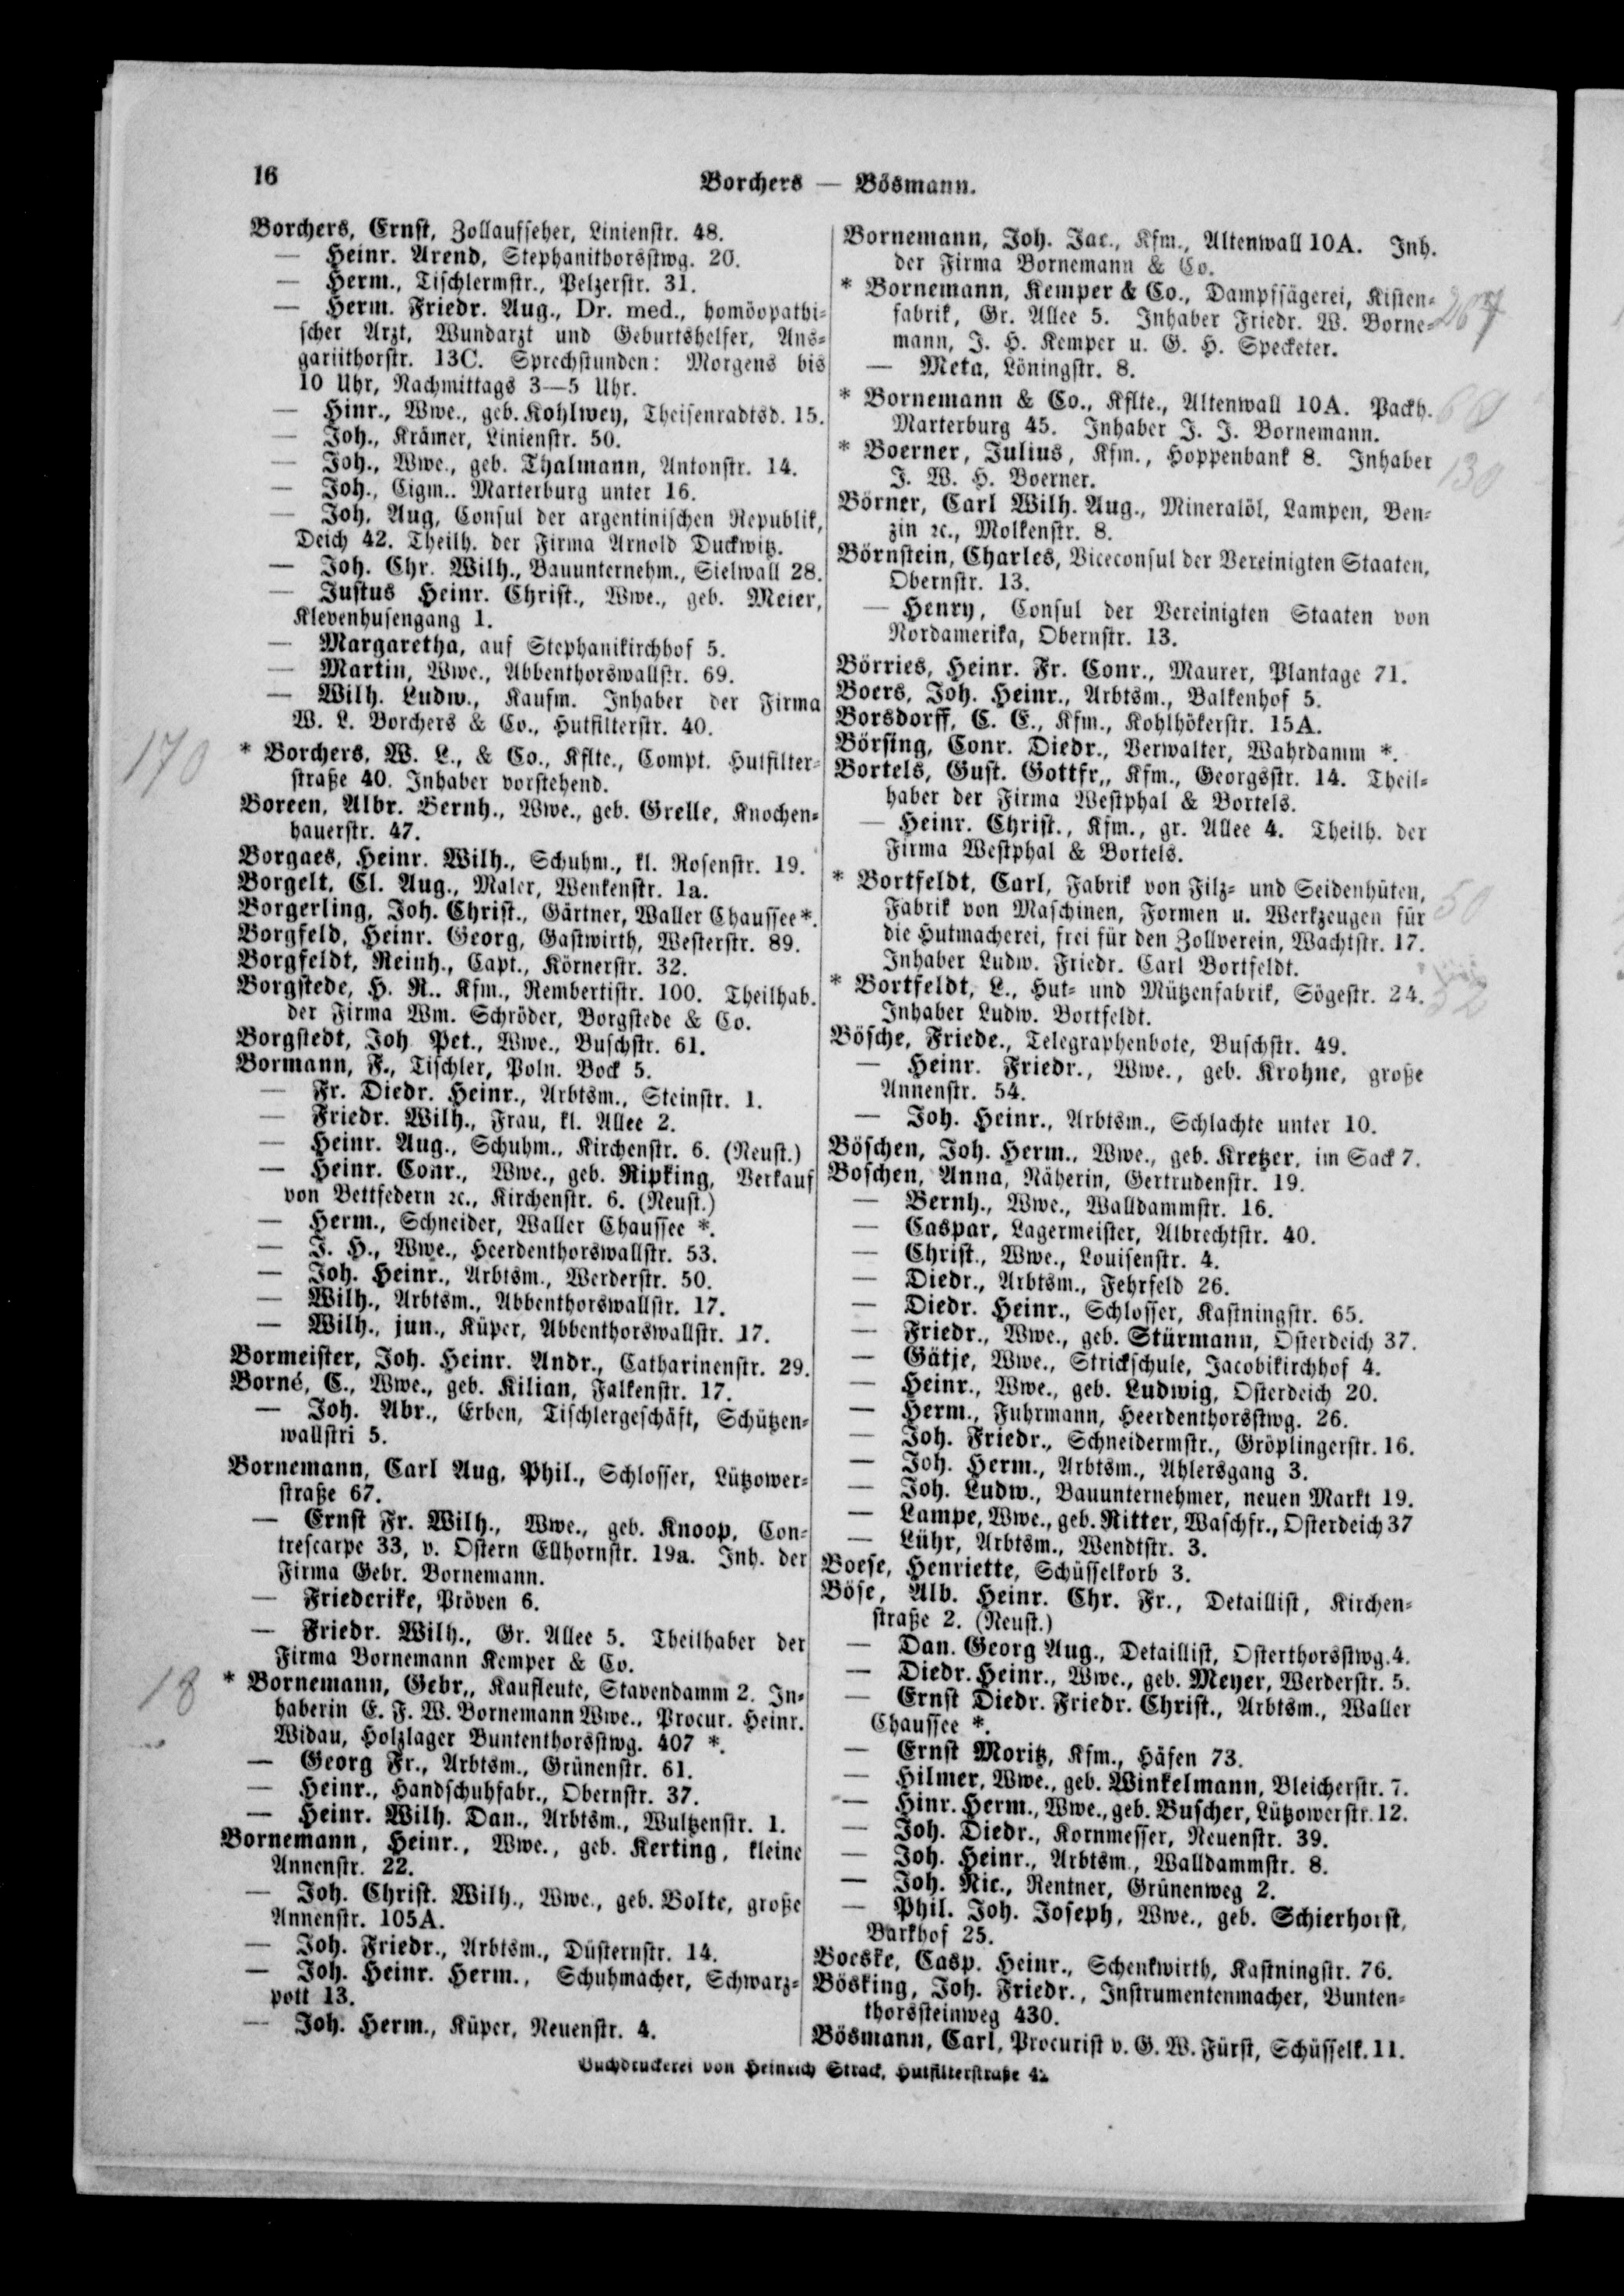 16
Borchers — Bösmann.
Borchers, Ernst, Zollaufseher, Linienstr. 48.
— Heinr. Arend, Stephanithorsstwg. 20.
— Herm., Tischlermstr., Pelzerstr. 31.
— Herm. Friedr. Aug., Dr. med., homöopathi-
scher Arzt, Wundarzt und Geburtshelfer, Ans-
gariithorstr. 13C. Sprechstunden: Morgens bis
10 Uhr, Nachmittags 3—5 Uhr.
— Hinr., Wwe., geb. Kohlwey, Theisenradtsd. 15.
— Joh., Krämer, Linienstr. 50.
— Joh., Wwe., geb. Thalmann, Antonstr. 14.
— Joh., Cigm.. Marterburg unter 16.
— Joh. Aug, Consul der argentinischen Republik,
Deich 42. Theilh. der Firma Arnold Duckwitz.
— Joh. Chr. Wilh., Bauunternehm., Sielwall 28.
— Justus Heinr. Christ., Wwe., geb. Meier,
Klevenhusengang 1.
— Margaretha, auf Stephanikirchhof 5.
— Martin, Wwe., Abbenthorswallstr. 69.
— Wilh. Ludw., Kaufm. Inhaber der Firma
W. L. Borchers & Co., Hutfilterstr. 40.
170
* Borchers, W. L., & Co., Kflte., Compt. Hutfilter-
straße 40. Inhaber vorstehend.
Boreen, Albr. Bernh., Wwe., geb. Grelle, Knochen-
hauerstr. 47.
Borgaes, Heinr. Wilh., Schuhm., kl. Rosenstr. 19.
Borgelt, Cl. Aug., Maler, Wenkenstr. 1a.
Borgerling, Joh. Christ., Gärtner, Waller Chaussee *.
Borgfeld, Heinr. Georg, Gastwirth, Westerstr. 89.
Borgfeldt, Reinh., Capt., Körnerstr. 32.
Borgstede, H. R.. Kfm., Rembertistr. 100. Theilhab.
der Firma Wm. Schröder, Borgstede & Co.
Borgstedt, Joh Pet., Wwe., Buschstr. 61.
Bormann, F., Tischler, Poln. Bock 5.
— Fr. Diedr. Heinr., Arbtsm., Steinstr. 1.
— Friedr. Wilh., Frau, kl. Allee 2.
— Heinr. Aug., Schuhm., Kirchenstr. 6. (Neust.)
— Heinr. Conr., Wwe., geb. Ripking, Verkauf
von Bettfedern ꝛc., Kirchenstr. 6. (Neust.)
— Herm., Schneider, Waller Chaussee *.
— J. H., Wwe., Heerdenthorswallstr. 53.
— Joh. Heinr., Arbtsm., Werderstr. 50.
— Wilh., Arbtsm., Abbenthorswallstr. 17.
— Wilh., jun., Küper, Abbenthorswallstr. 17.
Bormeister, Joh. Heinr. Andr., Catharinenstr. 29.
Borné, C., Wwe., geb. Kilian, Falkenstr. 17.
— Joh. Abr., Erben, Tischlergeschäft, Schützen-
wallstri 5.
Bornemann, Carl Aug. Phil., Schlosser, Lützower-
straße 67.
— Ernst Fr. Wilh., Wwe., geb. Knoop, Con-
trescarpe 33, v. Ostern Ellhornstr. 19a. Inh. der
Firma Gebr. Bornemann.
— Friederike, Pröven 6.
— Friedr. Wilh., Gr. Allee 5. Theilhaber der
Firma Bornemann Kemper & Co.
18
* Bornemann, Gebr., Kaufleute, Stavendamm 2. In-
haberin E. F. W. Bornemann Wwe., Procur. Heinr.
Widau, Holzlager Buntenthorsstwg. 407 *.
— Georg Fr., Arbtsm., Grünenstr. 61.
— Heinr., Handschuhfabr., Obernstr. 37.
— Heinr. Wilh. Dan., Arbtsm., Wultzenstr. 1.
Bornemann, Heinr., Wwe., geb. Kerting, kleine
Annenstr. 22.
— Joh. Christ. Wilh., Wwe., geb. Bolte, große
Annenstr. 105A.
— Joh. Friedr., Arbtsm., Düsternstr. 14.
— Joh. Heinr. Herm., Schuhmacher, Schwarz-
pott 13.
— Joh. Herm., Küper, Neuenstr. 4.
Bornemann, Joh. Jac., Kfm., Altenwall 10A. Inh.
der Firma Bornemann & Co.
* Bornemann, Kemper & Co., Dampfsägerei, Kisten-
fabrik, Gr. Allee 5. Inhaber Friedr. W. Borne-
mann, J. H. Kemper u. G. H. Specketer.
— Meta, Löningstr. 8.
* Bornemann & Co., Kflte., Altenwall 10A. Packh.
Marterburg 45. Inhaber J. J. Bornemann.
* Boerner, Julius, Kfm., Hoppenbank 8. Inhaber
J. W. H. Boerner.
130
Börner, Carl Wilh. Aug., Mineralöl, Lampen, Ben-
zin ꝛc., Molkenstr. 8.
Börnstein, Charles, Viceconsul der Vereinigten Staaten,
Obernstr. 13.
— Henry, Consul der Vereinigten Staaten von
Nordamerika, Obernstr. 13.
Börries, Heinr. Fr. Conr., Maurer, Plantage 71.
Boers, Joh. Heinr., Arbtsm., Balkenhof 5.
Borsdorff, C. E., Kfm., Kohlhökerstr. 15A.
Börsing, Conr. Diedr., Verwalter, Wahrdamm *.
Bortels, Gust. Gottfr., Kfm., Georgsstr. 14. Theil-
haber der Firma Westphal & Bortels.
— Heinr. Christ., Kfm., gr. Allee 4. Theilh. der
Firma Westphal & Bortels.
* Bortfeldt, Carl, Fabrik von Filz- und Seidenhüten,
Fabrik von Maschinen, Formen u. Werkzeugen für
die Hutmacherei, frei für den Zollverein, Wachtstr. 17.
Inhaber Ludw. Friedr. Carl Bortfeldt.
50
* Bortfeldt, L., Hut- und Mützenfabrik, Sögestr. 24.
Inhaber Ludw. Bortfeldt.
Bösche, Friede., Telegraphenbote, Buschstr. 49.
— Heinr. Friedr., Wwe., geb. Krohne, große
Annenstr. 54.
— Joh. Heinr., Arbtsm., Schlachte unter 10.
Böschen, Joh. Herm., Wwe., geb. Kretzer, im Sack 7.
Boschen, Anna, Näherin, Gertrudenstr. 19.
— Bernh., Wwe., Walldammstr. 16.
— Caspar, Lagermeister, Albrechtstr. 40.
— Christ., Wwe., Louisenstr. 4.
— Diedr., Arbtsm., Fehrfeld 26.
— Diedr. Heinr., Schlosser, Kastningstr. 65.
— Friedr., Wwe., geb. Stürmann, Osterdeich 37.
— Gätje, Wwe., Strickschule, Jacobikirchhof 4.
— Heinr., Wwe., geb. Ludwig, Osterdeich 20.
— Herm., Fuhrmann, Heerdenthorsstwg. 26.
— Joh. Friedr., Schneidermstr., Gröplingerstr. 16.
— Joh. Herm., Arbtsm., Ahlersgang 3.
— Joh. Ludw., Bauunternehmer, neuen Markt 19.
— Lampe, Wwe., geb. Ritter, Waschfr., Osterdeich 37
— Lühr, Arbtsm., Wendtstr. 3.
Boese, Henriette, Schüsselkorb 3.
Böse, Alb. Heinr. Chr. Fr., Detaillist, Kirchen-
straße 2. (Neust.)
— Dan. Georg Aug., Detaillist, Osterthorsstwg. 4.
— Diedr. Heinr., Wwe., geb. Meyer, Werderstr. 5.
— Ernst Diedr. Friedr. Christ., Arbtsm., Waller
Chaussee *.
— Ernst Moritz, Kfm., Häfen 73.
— Hilmer, Wwe., geb. Winkelmann, Bleicherstr. 7.
— Hinr. Herm., Wwe., geb. Buscher, Lützowerstr. 12.
— Joh. Diedr., Kornmesser, Neuenstr. 39.
— Joh. Heinr., Arbtsm., Walldammstr. 8.
— Joh. Nic., Rentner, Grünenweg 2.
— Phil. Joh. Joseph, Wwe., geb. Schierhorst,
Barkhof 25.
Boeske, Casp. Heinr., Schenkwirth, Kastningstr. 76.
Bösking, Joh. Friedr., Instrumentenmacher, Bunten-
thorssteinweg 430.
Bösmann, Carl, Procurist v. G. W. Fürst, Schüsselk. 11.
Buchdruckerei von Heinrich Strack, Hutfilterstraße 42